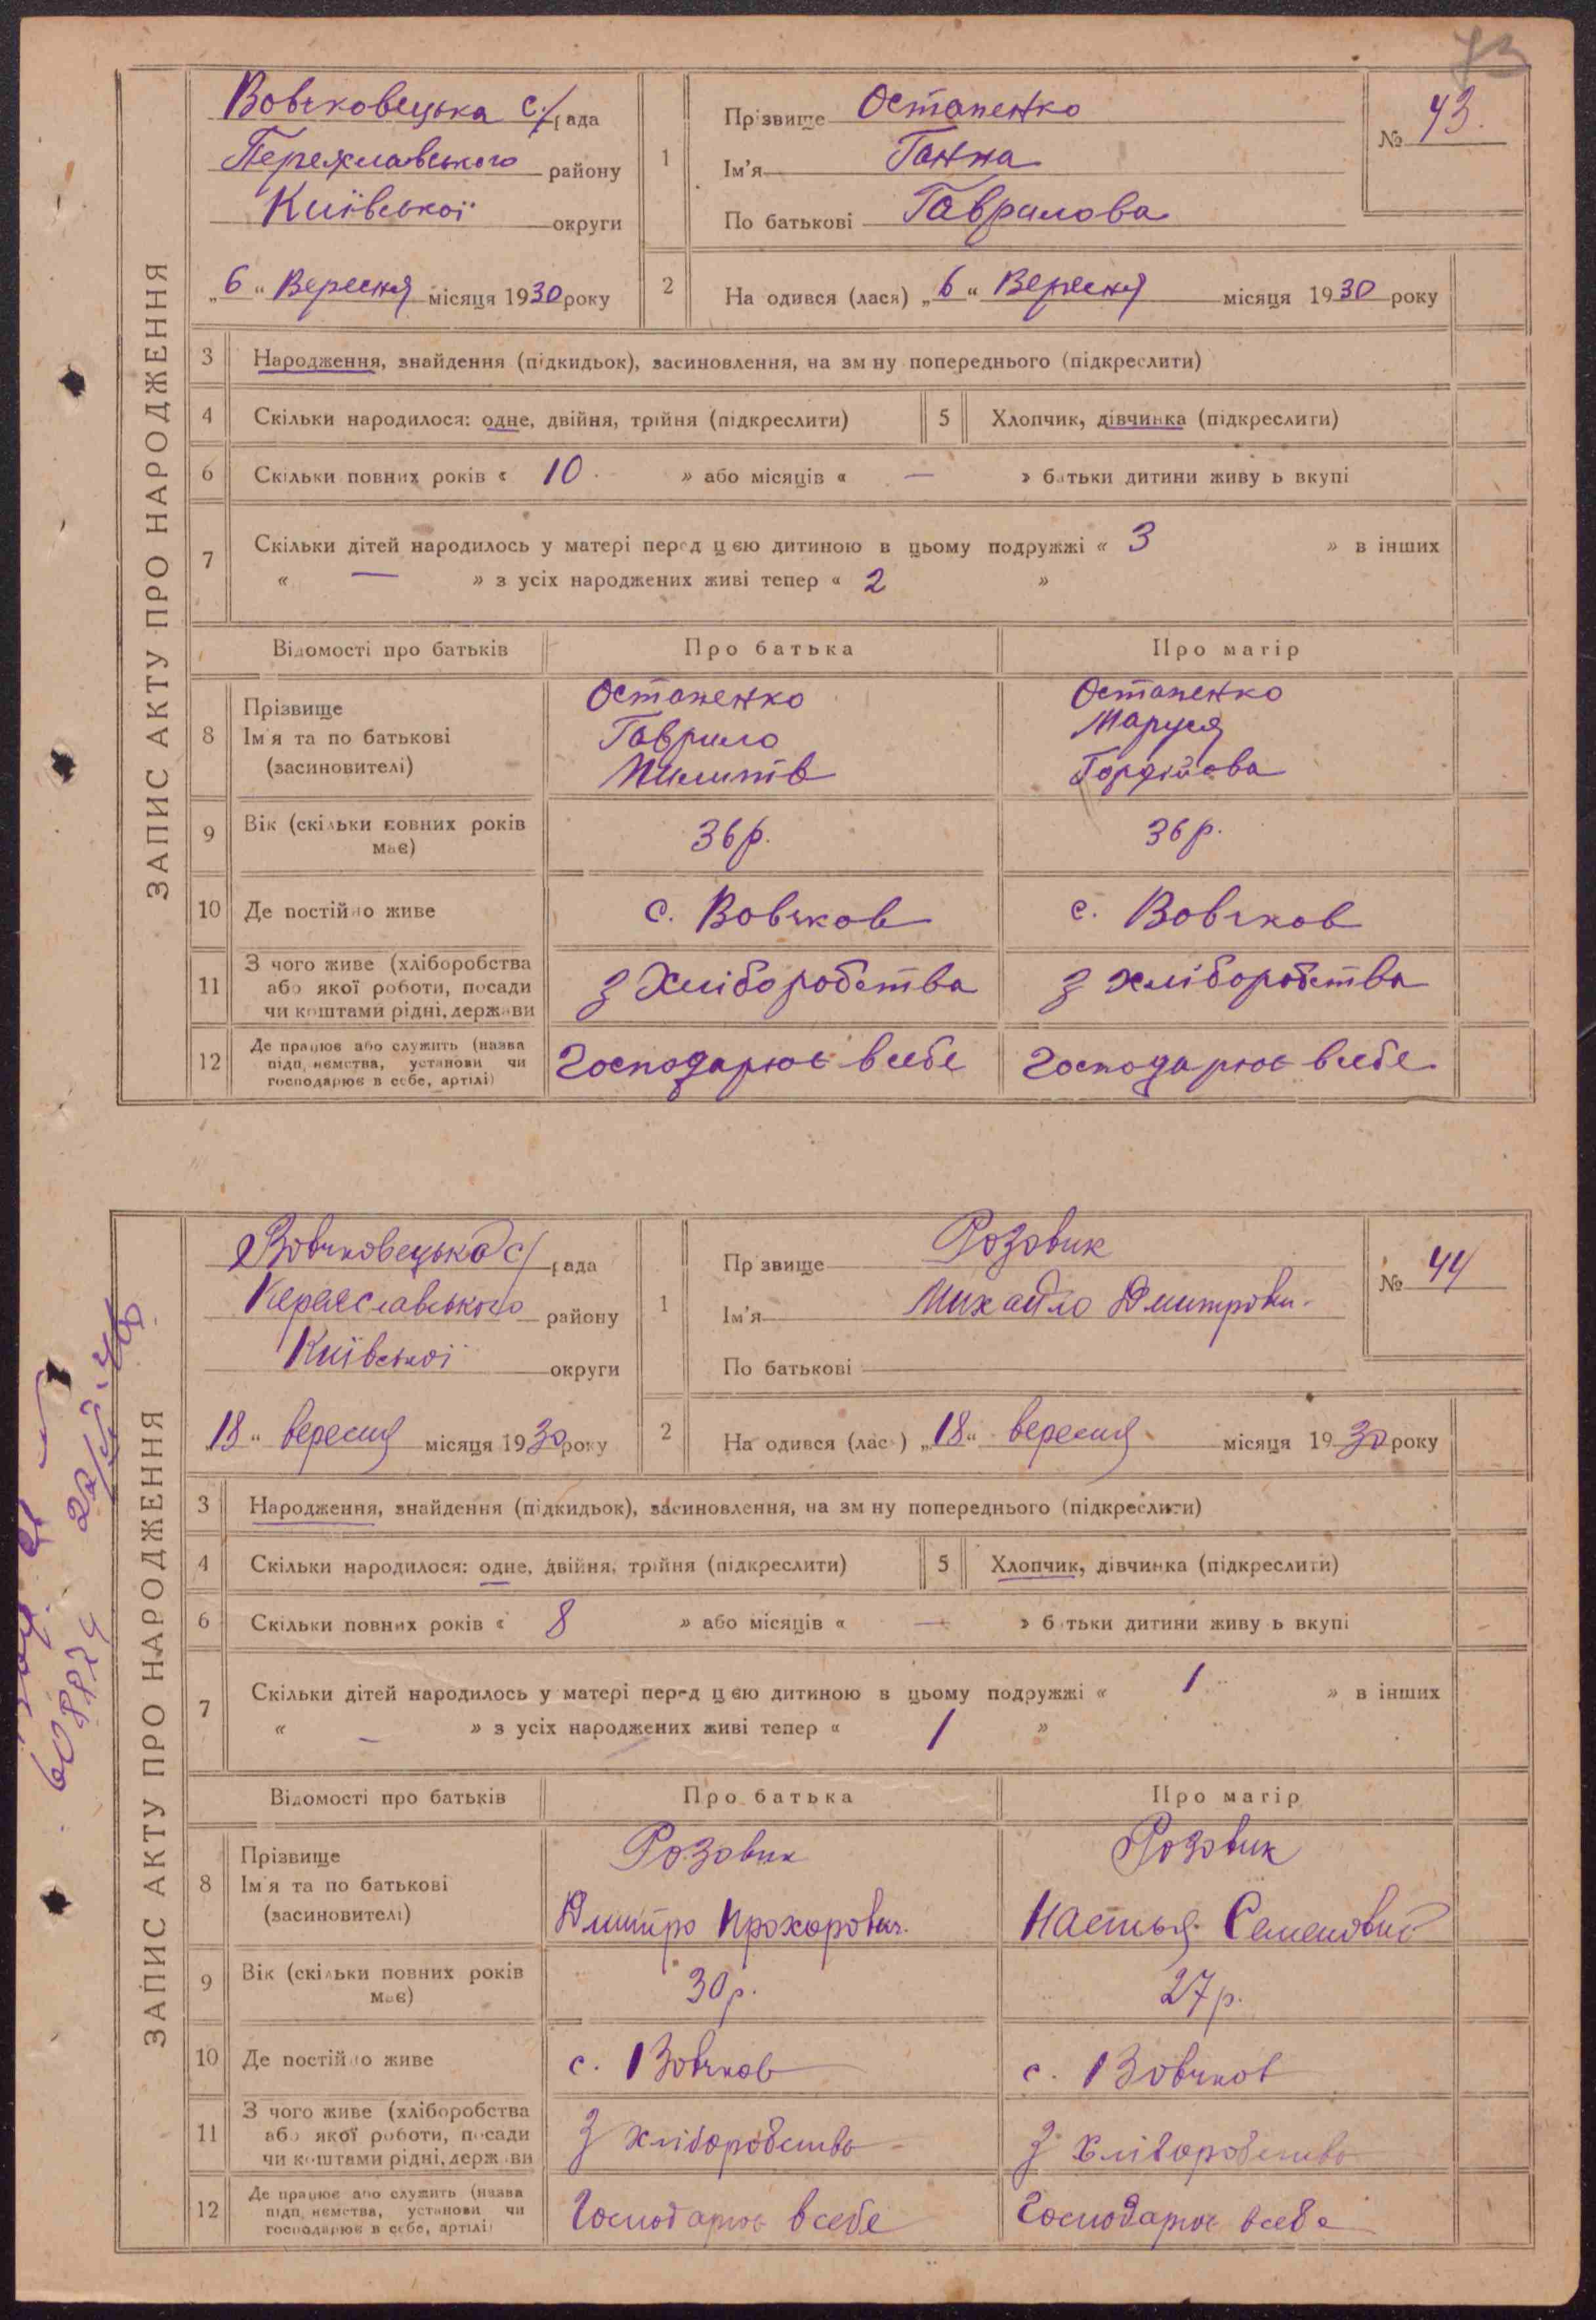 73
ЗАПИС АКТУ ПРО НАРОДЖЕННЯ
Вовчковецька с/рада
Переяславського району
Київської округи
„6“ Вересня місяця 1930 року
1
Прізвище Остапенко
Ім'я Ганна
По батькові Гаврилова
№ 43.
2
На одився (лася) „6“ Вересня місяця 1930 року
3 Народження, знайдення (підкидьок), засиновлення, на зм ну попереднього (підкреслити)
4 Скільки народилося: одне, двійня, трійня (підкреслити) 5 Хлопчик, дівчинка (підкреслити)
6 Скільки повних років « 10 » або місяців « — » батьки дитини живу ь вкупі
7 Скільки дітей народилось у матері перед цією дитиною в цьому подружжі « 3 » в інших
« — » з усіх народжених живі тепер « 2 »
Відомості про батьків Про батька Про матір
8 Прізвище
Ім'я та по батькові
(засиновителі)
Остапенко
Гаврило
Пилипів
Остапенко
Маруся
Гордійова
9 Вік (скільки повних років
має)
36 р. 36 р.
10 Де постійно живе с. Вовчков с. Вовчков
11 З чого живе (хліборобства
або якої роботи, посади
чи коштами рідні, держави
З Хліборобства З хліборобства
12 Де працює або служить (назва
підп, иємства, установи чи
господарює в себе, артілі)
Господарює в себе Господарює в себе
ЗАПИС АКТУ ПРО НАРОДЖЕННЯ
Вовчковецька с/рада
Переяславського району
Київської округи
„18“ вересня місяця 1930 року
1
Пр звище Розовик
Ім'я Михайло Дмитрови.
По батькові
№ 44
2
На одився (лас ) „18“ вересня місяця 1930 року
3 Народження, знайдення (підкидьок), засиновлення, на зм ну попереднього (підкреслити)
4 Скільки народилося: одне, двійня, трійня (підкреслити) 5 Хлопчик, дівчинка (підкреслити)
6 Скільки повних років « 8 » або місяців « — » б тьки дитини живу ь вкупі
7 Скільки дітей народилось у матері перед цією дитиною в цьому подружжі « 1 » в інших
« — » з усіх народжених живі тепер « 1 »
Відомості про батьків Про батька Про матір
8 Прізвище
Ім'я та по батькові
(засиновителі)
Розовик
Дмитро Прохорович.
Розовик
Настья Семенович
9 Вік (скільки повних років
має)
30 р. 27 р.
10 Де постійно живе с. Вовчков с. Вовчков
11 З чого живе (хліборобства
або якої роботи, посади
чи коштами рідні, держави
З хліборобства З хліборобства
12 Де працює або служить (назва
підп, иємства, установи чи
господарює в себе, артілі)
Господарює в себе Господарює в себе